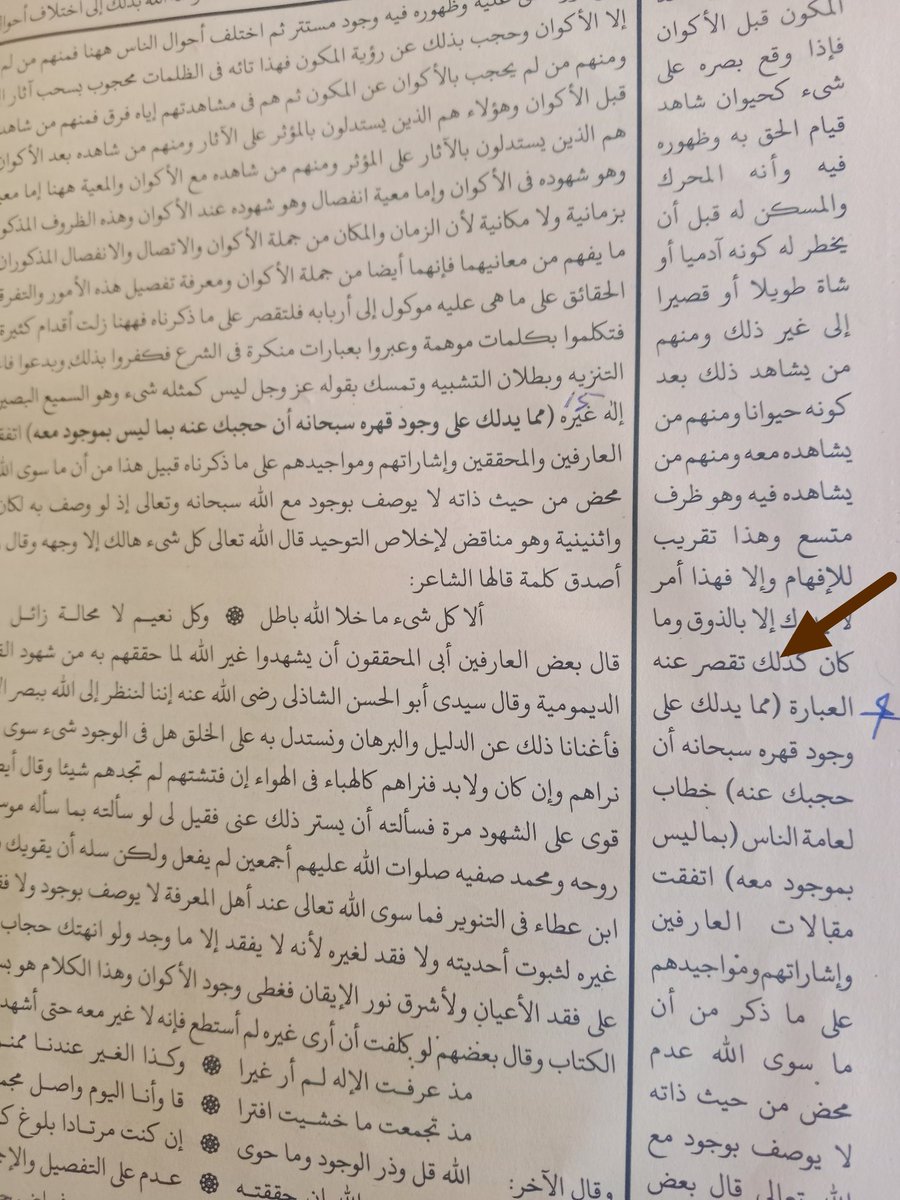 المكون قبل الأكوان
فإذا وقع بصره على
شىء كحيوان شاهد
قيام الحق به وظهوره
فيه وأنه المحرك
والمسكن له قبل أن
يخطر له كونه آدميا أو
شاة طويلا أو قصيرا
إلى غير ذلك ومنهم
من يشاهد ذلك بعد
كونه حيوانا ومنهم من
يشاهده معه ومنهم من
يشاهده فيه وهو ظرف
متسع وهذا تقريب
للإفهام وإلا فهذا أمر
إلا بالذوق وما
كان كذلك تقصر عنه
العبارة (مما يدلك على
وجود قهره سبحانه أن
حجبك عنه) خطاب
لعامة الناس (بما ليس
بموجود معه) اتفقت
مقالات العارفين
وإشاراتهم ومواجيدهم
على ما ذكر من أن
ما سوى الله عدم
محض من حيث ذاته
لا يوصف بوجود مع
الله تعالى قال بعض
وظهوره فيه وجود مستتر ثم اختلف أحوال الناس ههنا فمنهم من لم
إلا الأكوان وحجب بذلك عن رؤية المكون فهذا تائه فى الظلمات محجوب بسحب آثار
ومنهم من لم يحجب بالأكوان عن المكون ثم هم فى مشاهدتهم إياه فرق فمنهم من شاهد
قبل الأكوان وهؤلاء هم الذين يستدلون بالمؤثر على الآثار ومنهم من شاهده بعد الأكوان
هم الذين يستدلون بالآثار على المؤثر ومنهم من شاهده مع الأكوان والمعية ههنا إما
وهو شهوده فى الأكوان وإما معية انفصال وهو شهوده عند الأكوان وهذه الظروف
بزمانية ولا مكانية لأن الزمان والمكان من جملة الأكوان والاتصال والانفصال المذكوران
ما يفهم من معانيهما فإنهما أيضا من جملة الأكوان ومعرفة تفصيل هذه الأمور
الحقائق على ما هى عليه موكول إلى أربابه فلتقصر على ما ذكرناه فههنا زلت أقدام كثيرة
فتكلموا بكلمات موهمة وعبروا بعبارات منكرة فى الشرع فكفروا بذلك وبدعوا
التنزيه وبطلان التشبيه وتمسك بقوله عز وجل ليس كمثله شىء وهو السميع البصير
إله غيره (مما يدلك على وجود قهره سبحانه أن حجبك عنه بما ليس بموجود معه)
العارفين والمحققين وإشاراتهم ومواجيدهم على ما ذكرناه قبيل هذا من أن ما سوى
محض من حيث ذاته لا يوصف بوجود مع الله سبحانه وتعالى إذ لو وصف به لكان
واثنينية وهو مناقض لإخلاص التوحيد قال الله تعالى كل شىء هالك إلا وجهه وقال
أصدق كلمة قالها الشاعر:
ألا كل شىء ما خلا الله باطل ۞ وكل نعيم لا محالة زائل
قال بعض العارفين أبى المحققون أن يشهدوا غير الله لما حققهم به من شهود
الديمومية وقال سيدى أبو الحسن الشاذلى رضى الله عنه إننا لننظر إلى الله ببصر
فأغنانا ذلك عن الدليل والبرهان ونستدل به على الخلق هل فى الوجود شىء سوى
نراهم وإن كان ولابد فنراهم كالهباء فى الهواء إن فتشتهم لم تجدهم شيئا وقال
قوى على الشهود مرة فسألته أن يستر ذلك عنى فقيل لى لو سألته بما سأله
روحه ومحمد صفيه صلوات الله عليهم أجمعين لم يفعل ولكن سله أن يقويك
ابن عطاء فى التنوير فما سوى الله تعالى عند أهل المعرفة لا يوصف بوجود ولا
غيره لثبوت أحديته ولا فقد لغيره لأنه لا يفقد إلا ما وجد ولو انهتك حجاب
على فقد الأعيان ولأشرق نور الإيقان فغطى وجود الأكوان وهذا الكلام هو
الكتاب وقال بعضهم لو كلفت أن أرى غيره لم أستطع فإنه لا غير معه حتى
مذ عرفت الإله لم أر غيرا ۞ وكذا الغير عندنا
مذ تجمعت ما خشيت افترا ۞ قا وأنا اليوم واصل
وقال الآخر:
الله قل وذر الوجود وما حوى ۞ إن كنت مرتادا بلوغ
۞ عدم على التفصيل